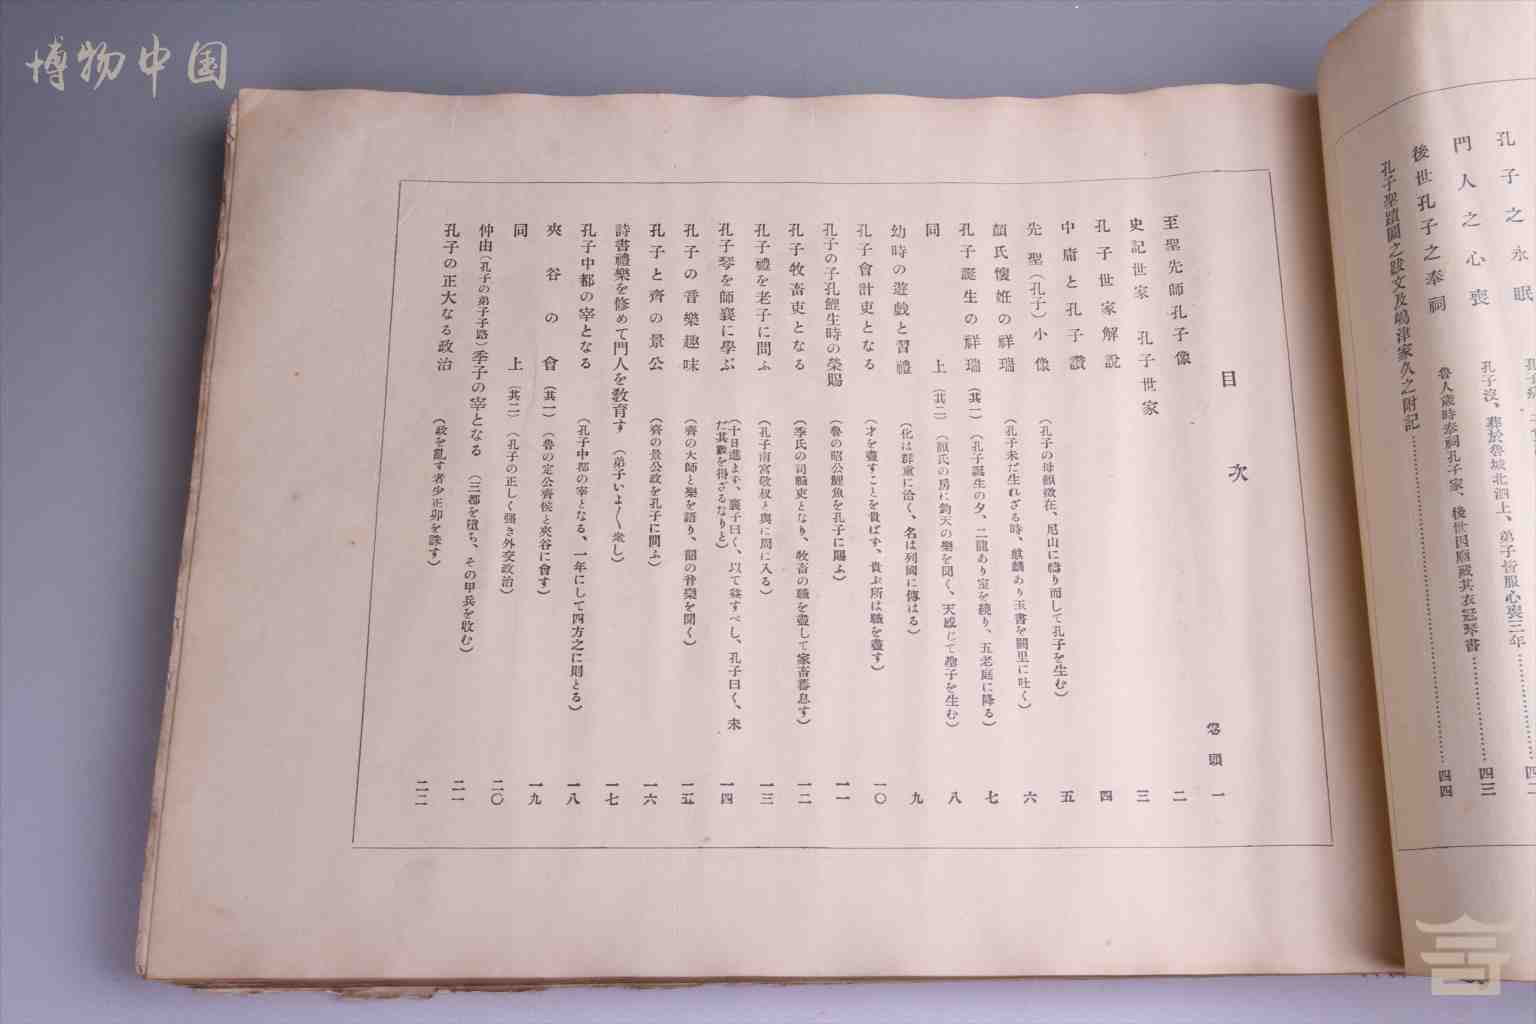 博物中国
孔子之永眠
門人之心喪 孔子沒、葬於魯城北泗上、弟子皆服心喪三年 四三
後世孔子之奉祠 魯人歲時奉祠孔子家、後世因廟藏其衣冠琴書 四四
孔子聖蹟圖之跋文及嶋津家久之附記
目次
卷頭 一
至聖先師孔子像 二
史記世家 孔子世家 三
孔子世家解說 四
中庸と孔子讚 五
先聖(孔子)小像 (孔子の母顏徵在、尼山に禱り而して孔子を生む) 六
顏氏懷姙の祥瑞 (孔子未だ生れざる時、麒麟あり玉書を闕里に吐く) 七
孔子誕生の祥瑞 (其一) (孔子誕生の夕、二龍あり室を繞り、五老庭に降る) 八
同上 (其二) (顏氏の房に鈞天の樂を聞く、天感じて聖子を生む) 九
幼時の遊戲と習禮 (化は群童に洽く、名は列國に傳はる) 一〇
孔子會計吏となる (才を盡すことを貴ばず、貴ぶ所は職を盡す) 一一
孔子の子孔鯉生時の榮賜 (魯の昭公鯉魚を孔子に賜ふ) 一二
孔子牧畜吏となる (季氏の司職吏となり、牧畜の職を盡して家畜蕃息す) 一三
孔子禮を老子に問ふ (孔子南宮敬叔と與に周に入る) 一四
孔子琴を師襄に學ぶ (十日進まず、襄子曰く、以て益すべし、孔子曰く、未
だ其數を得ざるなりと) 一五
孔子の音樂趣味 (齊の大師と樂を語り、韶の音樂を聞く) 一六
孔子と齊の景公 (齊の景公政を孔子に問ふ) 一七
詩書禮樂を修めて門人を敎育す (弟子いよ〱衆し) 一八
孔子中都の宰となる (孔子中都の宰となる、一年にして四方之に則とる) 一九
夾谷の會 (其一) (魯の定公齊侯と夾谷に會す) 二〇
同上 (其二) (孔子の正しく强き外交政治) 二一
仲由(孔子の弟子子路)季子の宰となる (三都を墮ち、その甲兵を收む) 二二
孔子の正大なる政治 (政を亂す者少正卯を誅す)